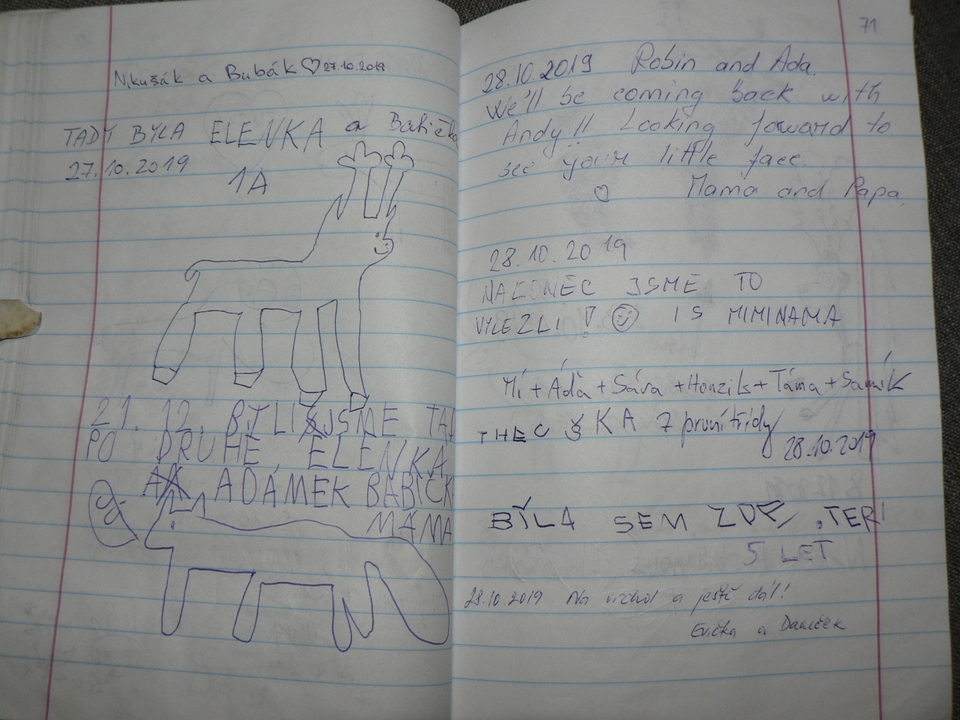 Nikušák a Bubák ♡ 27.10.2019
TADY BYLA ELENKA a Babička
27.10.2019
1A
21. 12. BYLI JSME TADY
PO DRUHÉ ELENKA
ADÁMEK BABIČK
MÁMA
71
28.10.2019 Robin and Ada.
We'll be coming back with
Andy!! Looking foward to
see your little face.
♡ Mama and Papa.
28.10.2019
NAKONEC JSME TO
VYLEZLI! ☺ I S MIMINAMA
Mí + Áďa + Sára + Honzík + Táma + Samík
KA z první třídy
28.10.2019
BÝLA SEM ZDE, TERI
5 LET
28.10.2019 Na vrchol a ještě dál!
Evička a Daneček